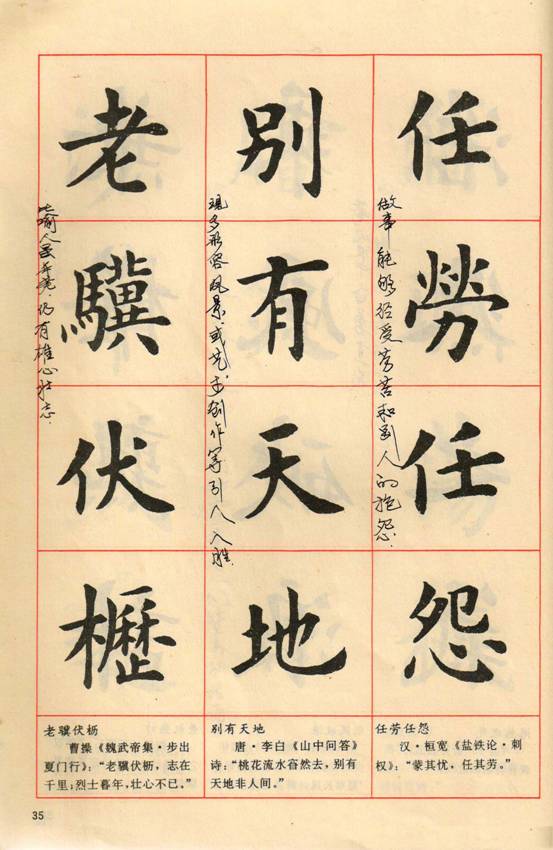 任勞任怨
做事能够经受劳苦和别人的抱怨.
别有天地
现多形容风景或艺术创作等引人入胜.
老驥伏櫪
比喻人虽年老.仍有雄心壮志.
任劳任怨
汉·桓宽《盐铁论·刺
权》：“蒙其忧，任其劳。”
别有天地
唐·李白《山中问答》
诗：“桃花流水窅然去，别有
天地非人间。”
老骥伏枥
曹操《魏武帝集·步出
夏门行》：“老骥伏枥，志在
千里；烈士暮年，壮心不已。”
35